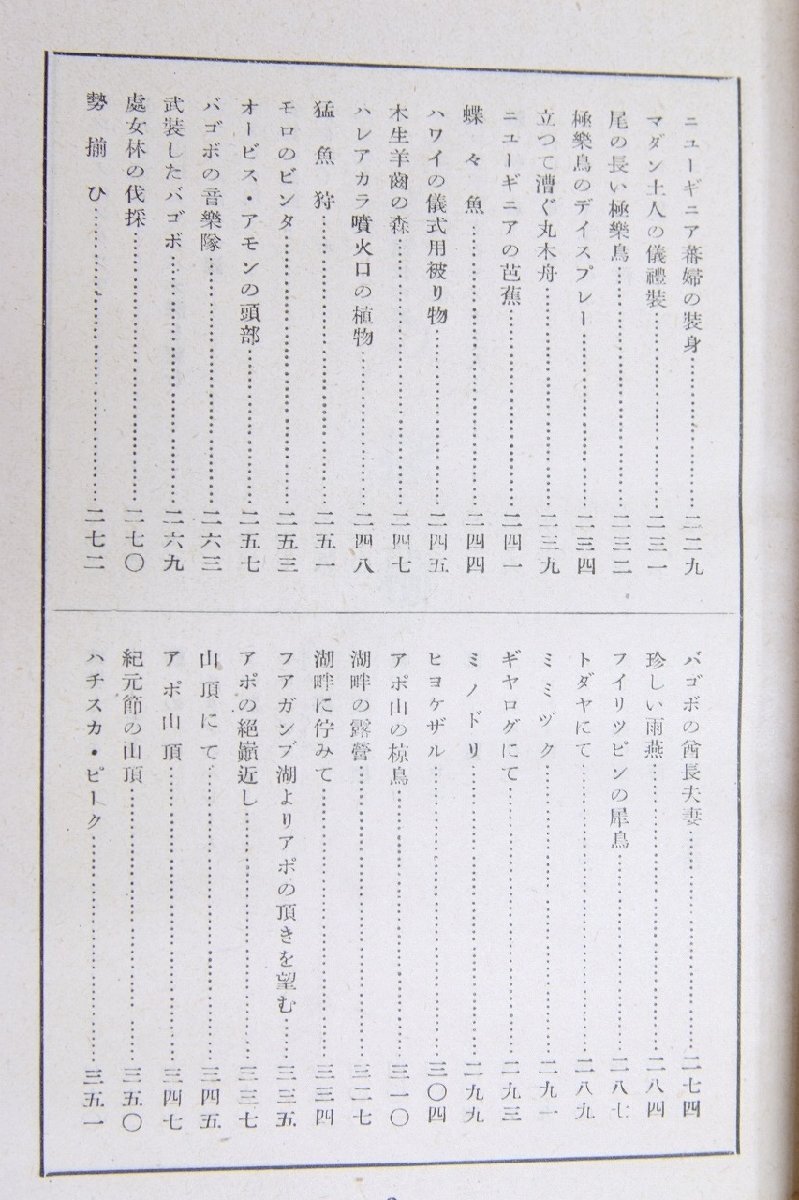 ニューギニア蕃婦の裝身…………二二九
マダン土人の儀禮裝…………二三一
尾の長い極樂鳥…………二三二
極樂鳥のデイスプレー…………二三四
立つて漕ぐ丸木舟…………二三九
ニューギニアの芭蕉…………二四一
蝶々魚…………二四四
ハワイの儀式用被り物…………二四五
木生羊齒の森…………二四七
ハレアカラ噴火口の植物…………二四八
猛魚狩…………二五一
モロのビンタ…………二五三
オービス・アモンの頭部…………二五七
バゴボの音樂隊…………二六三
武裝したバゴボ…………二六九
處女林の伐採…………二七〇
勢揃ひ…………二七二
バゴボの酋長夫妻…………二七四
珍しい雨燕…………二八四
フイリツピンの犀鳥…………二八七
トダヤにて…………二八九
ミミヅク…………二九一
ギヤログにて…………二九三
ミノドリ…………二九九
ヒヨケザル…………三〇四
アポ山の椋鳥…………三一〇
湖畔の露營…………三二七
湖畔に佇みて…………三三四
フアガンブ湖よりアポの頂きを望む…………三三五
アポの絶巓近し…………三三七
山頂にて…………三四五
アポ山頂…………三四七
紀元節の山頂…………三五〇
ハチスカ・ピーク…………三五一